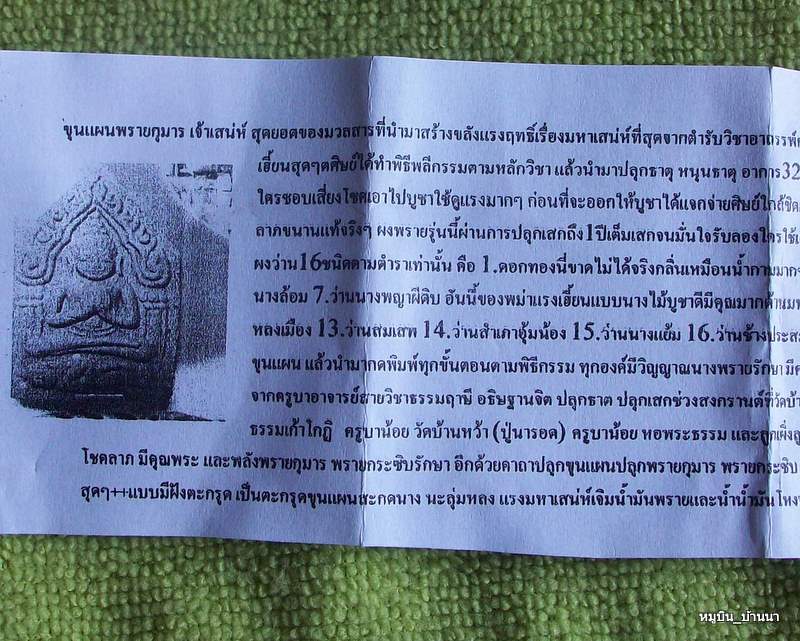 ขุนแผนพรายกุมาร เจ้าเสน่ห์ สุดยอดของมวลสารที่นำมาสร้างขลังแรงฤทธิ์เรื่องมหาเสน่ห์ที่สุดจากตำรับวิชาอาถรรพ์
เฮี้ยนสุดๆตศิษย์ได้ทำพิธีพลีกรรมตามหลักวิชา แล้วนำมาปลุกธาตุ หนุนธาตุ อาการ32
ใครชอบเสี่ยงโชคเอาไปบูชาใช้ดูแรงมากๆ ก่อนที่จะออกให้บูชาได้แจกจ่ายศิษย์ใกล้ชิด
ลาภขนานแท้จริงๆ ผงพรายรุ่นนี้ผ่านการปลุกเสกถึง1ปีเต็มเสกจนมั่นใจรับลองใครใช้
ผงว่าน16ชนิดตามตำราเท่านั้น คือ 1.ดอกทองนี่ขาดไม่ได้จริงกลิ่นเหมือนน้ำกามมาก
นางล้อม 7.ว่านนางพญาผีดิบ อันนี้ของพม่าแรงเฮี้ยนแบบนางไม้บูชาดีมีคุณมากด้าน
หลงเมือง 13.ว่านสมเสพ 14.ว่านสำเภาอุ้มน้อง 15.ว่านนางแย้ม 16.ว่านช้างประสม
ขุนแผน แล้วนำมากดพิมพ์ทุกขั้นตอนตามพิธีกรรม ทุกองค์มีวิญญาณนางพรายรักษา มี
จากครูบาอาจารย์สายวิชาธรรมฤาษี อธิษฐานจิต ปลุกธาต ปลุกเสกช่วงสงกรานต์ที่วัดบ้า
ธรรมเก้าโกฏิ ครูบาน้อย วัดบ้านหว้า (ปู่นารอด) ครูบาน้อย หอพระธรรม และลูกเผิ่ง
โชคลาภ มีคุณพระ และพลังพรายกุมาร พรายกระซิบรักษา อีกด้วยคาถาปลุกขุนแผนปลุกพรายกุมาร พรายกระซิบ
สุดๆ++แบบมีฝังตะกรุด เป็นตะกรุดขุนแผนสะกดนาง นะลุ่มหลง แรงมหาเสน่ห์เจิมน้ำมันพรายและน้ำน้ำมันโหง
หมูบิน_บ้านนา